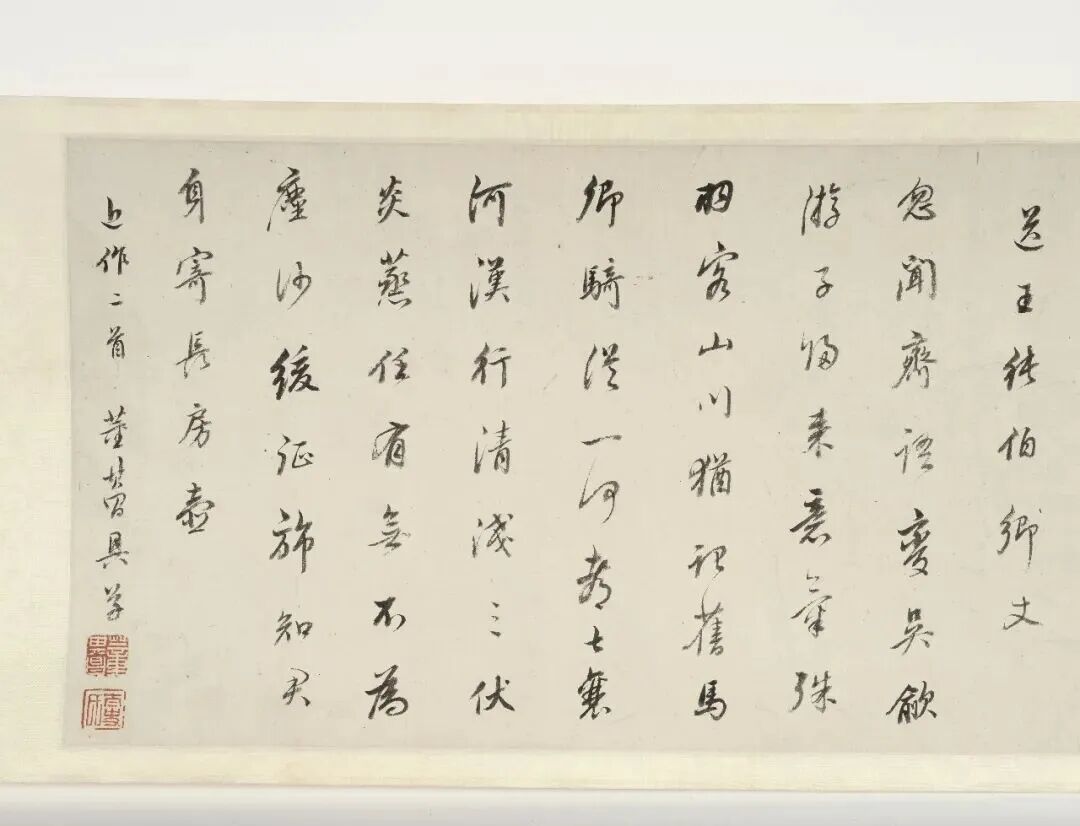 送王伯卿丈
忽聞齊語變吳歈
游子歸来意氣殊
羽客山川猶記舊馬
卿騎從一何都七襄
河漢行清淺三伏
炎蒸任有無不為
塵沙緩征旆知君
身寄長房壺
近作二首 董其昌具草